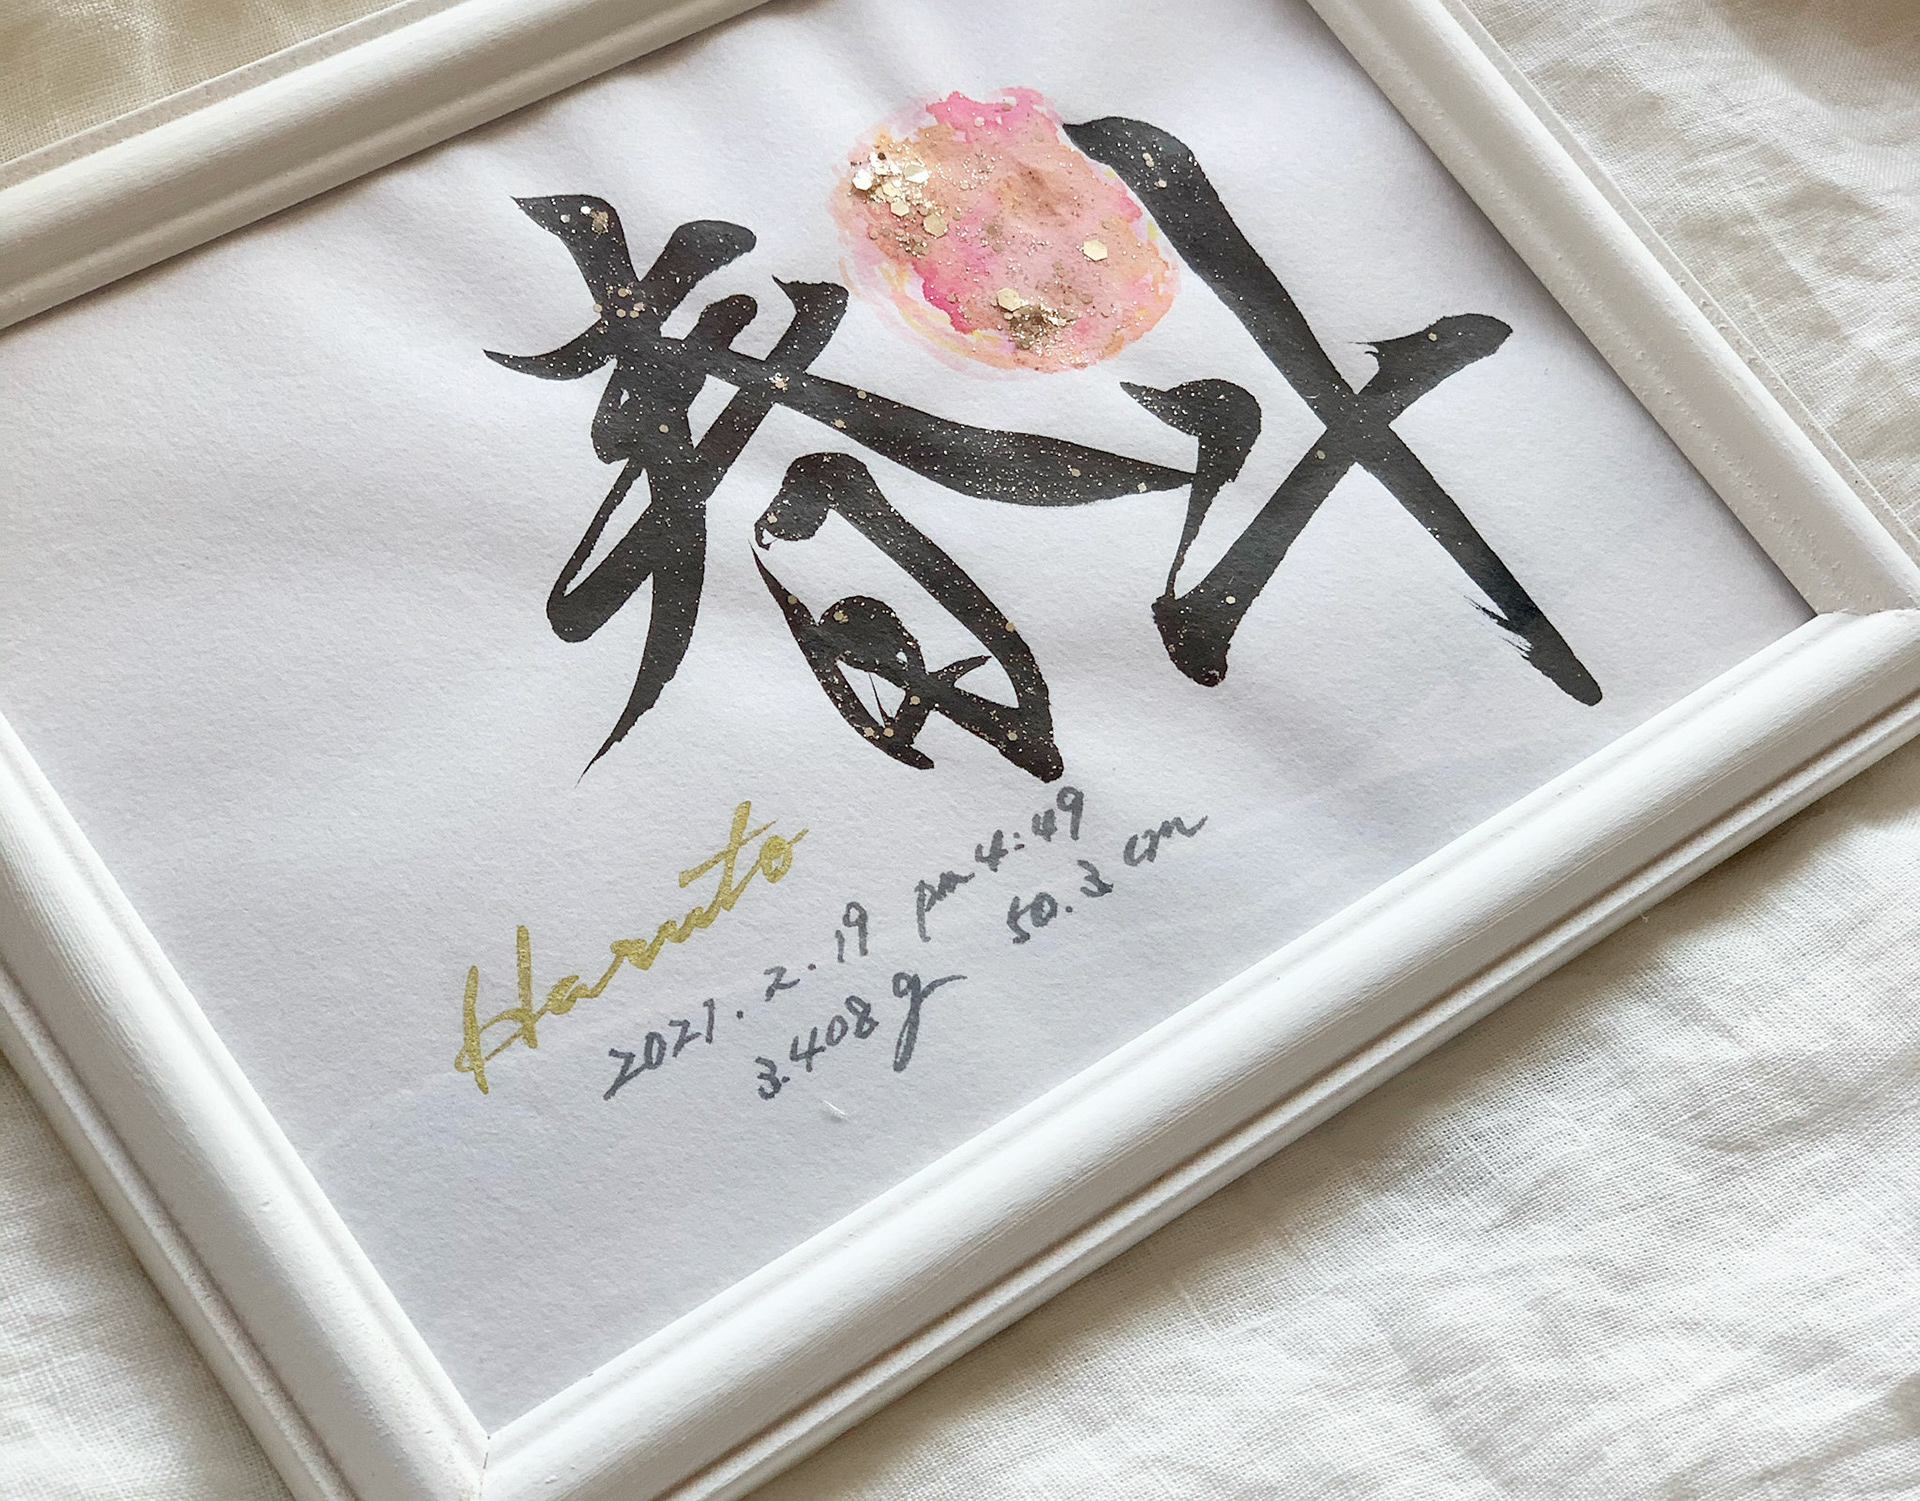 春斗
Haruto
2021.2.19 pm4:49
3.408g 50.3cm